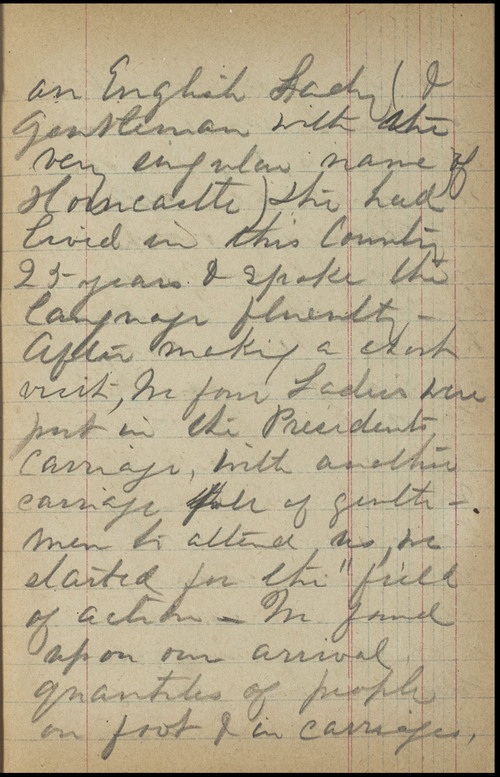 an English Lady (&
Gentleman with the
very singular name of
Horncastle) She had
lived in this Country
25 years & spoke the
language fluently -
After making a short
visit, We four Ladies were
put in the Presidents
Carriage, with another
carriage full of gentle-
men to attend us, we
started for the "field
of action - We found
upon our arrival
quantities of people
on foot & in carriages,